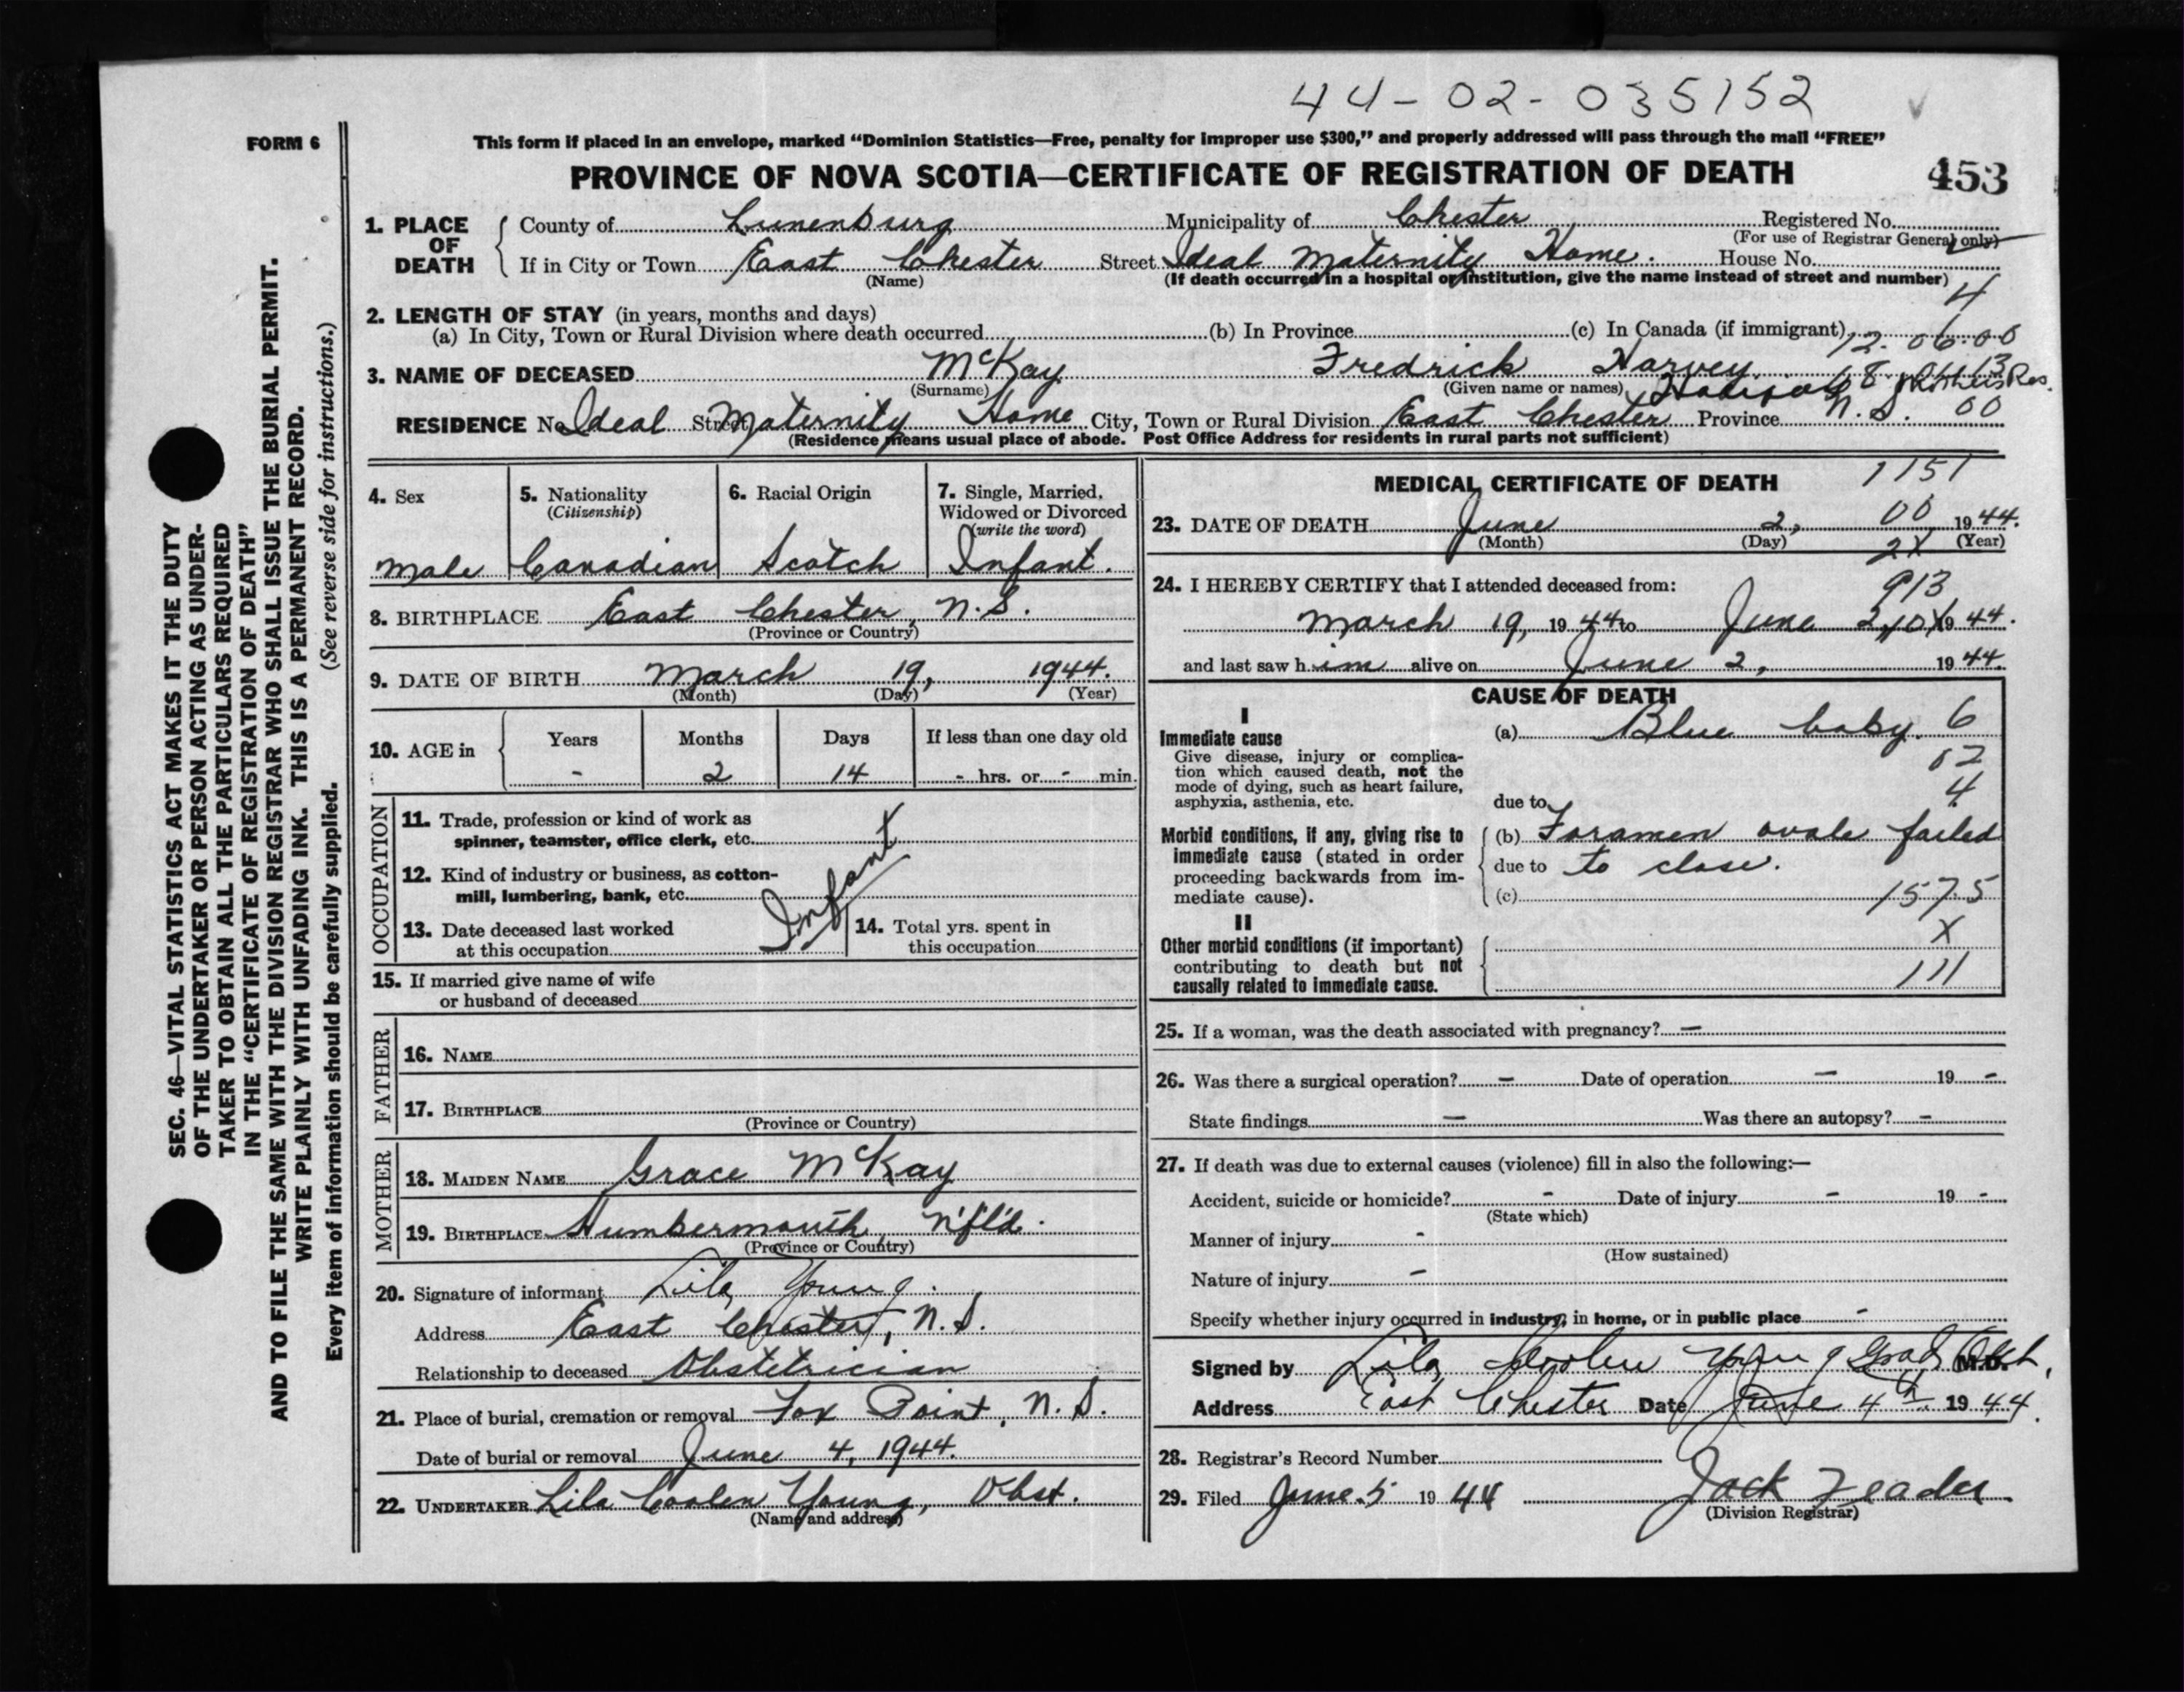 44-02-035152
FORM 6
This form if placed in an envelope, marked “Dominion Statistics—Free, penalty for improper use $300,” and properly addressed will pass through the mail “FREE”
PROVINCE OF NOVA SCOTIA—CERTIFICATE OF REGISTRATION OF DEATH 453
1. PLACE OF DEATH County of Lunenburg Municipality of Chester Registered No.
(For use of Registrar General only)
If in City or Town East Chester Street Ideal Maternity Home. House No.
(Name) (If death occurred in a hospital or institution, give the name instead of street and number)
4
2. LENGTH OF STAY (in years, months and days)
(a) In City, Town or Rural Division where death occurred (b) In Province (c) In Canada (if immigrant)
12.06.00
3. NAME OF DECEASED McKay Fredrick Harvey
(Surname) (Given name or names)
RESIDENCE No. Ideal Street Maternity Home City, Town or Rural Division East Chester Province N.S. 00
(Residence means usual place of abode. Post Office Address for residents in rural parts not sufficient)
4. Sex
Male
5. Nationality
(Citizenship)
Canadian
6. Racial Origin
Scotch
7. Single, Married,
Widowed or Divorced
(write the word)
Infant.
8. BIRTHPLACE East Chester, N.S.
(Province or Country)
9. DATE OF BIRTH March 19, 1944.
(Month) (Day) (Year)
10. AGE in Years Months Days If less than one day old
- 2 14 - hrs. or - min.
OCCUPATION
11. Trade, profession or kind of work as
spinner, teamster, office clerk, etc.
12. Kind of industry or business, as cotton-
mill, lumbering, bank, etc.
Infant
13. Date deceased last worked
at this occupation
14. Total yrs. spent in
this occupation
15. If married give name of wife
or husband of deceased
FATHER
16. NAME
17. BIRTHPLACE
(Province or Country)
MOTHER
18. MAIDEN NAME Grace McKay
19. BIRTHPLACE Humbermouth, N'f'l'd.
(Province or Country)
20. Signature of informant Lila Young.
Address East Chester, N.S.
Relationship to deceased Obstetrician
21. Place of burial, cremation or removal Fox Point, N.S.
Date of burial or removal June 4, 1944.
22. UNDERTAKER Lila Coolen Young, Obst.
(Name and address)
MEDICAL CERTIFICATE OF DEATH 1151
23. DATE OF DEATH June 2, 00 1944.
(Month) (Day) (Year)
2X
24. I HEREBY CERTIFY that I attended deceased from:
913
March 19, 1944 to June 2, 1944.
and last saw him alive on June 2, 1944.
CAUSE OF DEATH
I
Immediate cause
Give disease, injury or complica-
tion which caused death, not the
mode of dying, such as heart failure,
asphyxia, asthenia, etc.
(a) Blue baby. 6
02
4
due to
Morbid conditions, if any, giving rise to
immediate cause (stated in order
proceeding backwards from im-
mediate cause).
(b) Foramen ovale failed
due to to close.
(c) 157.5
II
Other morbid conditions (if important)
contributing to death but not
causally related to immediate cause.
X
111
25. If a woman, was the death associated with pregnancy? —
26. Was there a surgical operation? — Date of operation — 19 -
State findings — Was there an autopsy? -
27. If death was due to external causes (violence) fill in also the following:—
Accident, suicide or homicide? - Date of injury - 19 -
(State which)
Manner of injury -
(How sustained)
Nature of injury -
Specify whether injury occurred in industry, in home, or in public place -
Signed by Lila Coolen Young Grad. Obst. M.D.
Address East Chester Date June 4th 1944.
28. Registrar's Record Number
29. Filed June 5 1944 Jack Zeader
(Division Registrar)
SEC. 46—VITAL STATISTICS ACT MAKES IT THE DUTY
OF THE UNDERTAKER OR PERSON ACTING AS UNDER-
TAKER TO OBTAIN ALL THE PARTICULARS REQUIRED
IN THE “CERTIFICATE OF REGISTRATION OF DEATH”
AND TO FILE THE SAME WITH THE DIVISION REGISTRAR WHO SHALL ISSUE THE BURIAL PERMIT.
WRITE PLAINLY WITH UNFADING INK. THIS IS A PERMANENT RECORD.
Every item of information should be carefully supplied. (See reverse side for instructions.)